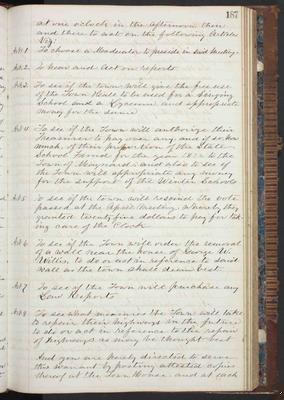 187
at one o'clock in the afternoon then
and there to act on the following articles
Viz.
Art 1. To choose a Moderator to preside in said meeting.
Art 2. To hear and act on reports
Art 3. To see if the town will give the free use
of the Town House to be used for a Singing
School and a Lyceum and appropriate
money for the same
Art 4. To see if the Town will authorize their
Treasurer to pay over any, and if so how
much, of their proportion of the State
School Fund for the year 1871 to the
Town of Maynard: and also to see if
the Town will appropriate any money
for the support of the Winter Schools
Art 5 To see if the town will rescind the vote
passed at the April meeting, whereby they
granted twenty five dollars to pay for tak
ing care of the Clock
Art 6 To see if the Town will order the removal
of a wall near the house of George W.
Willis, to do or act in reference to said
wall as the town shall deem best.
Art 7 To see if the Town will purchase any
Law Reports
Art 8 To see what measures the Town will take
to repair their highways in the future
to do or act in reference to the repair
of highways as may be thought best
And you are hereby directed to serve
this warrant by posting attested copies
thereof at the Town House and at each